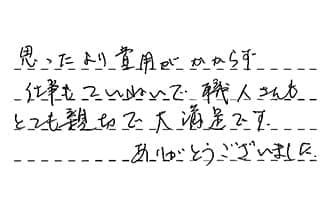 思ったより費用がかからず
仕事もていねいで職人さんも
とても親切で大満足です.
ありがとうございました.